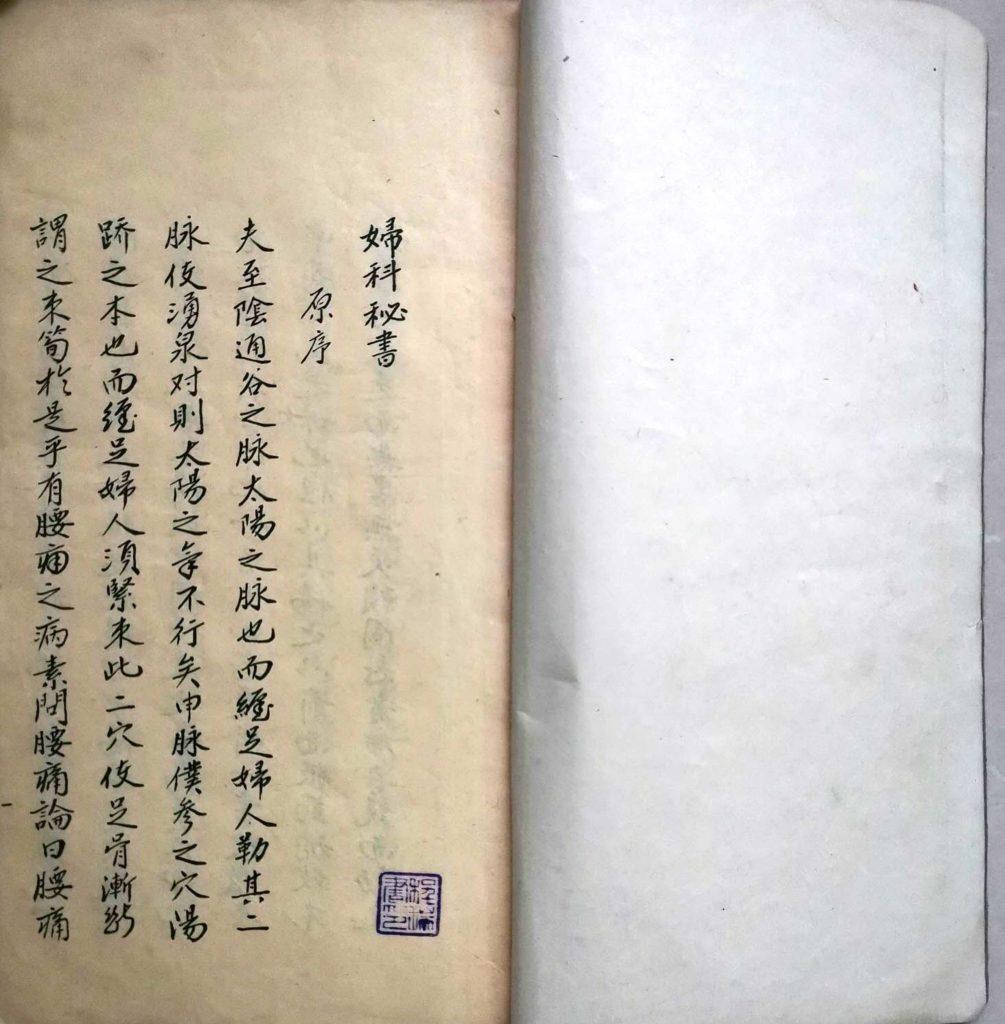 婦科秘書
原序
夫至陰通谷之脉太陽之脉也而纏足婦人勒其二
脉使湧泉对則太陽之氣不行矣申脉僕參之穴湯
蹻之本也而纏足婦人須緊束此二穴使足骨漸斷
謂之束筍於是乎有腰痛之病素問腰痛論曰腰痛